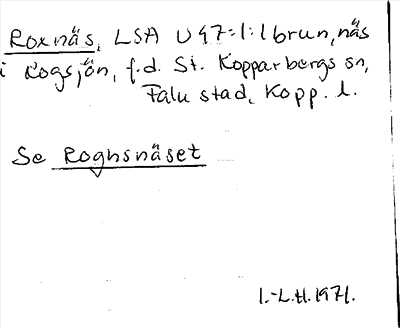 Roxnäs, LSA U 47:1:1 brun, näs
i Rogsjön, f.d. St. Kopparbergs sn,
Falu stad, Kopp. l.
Se Roghsnäset
I.-L.H. 1971.